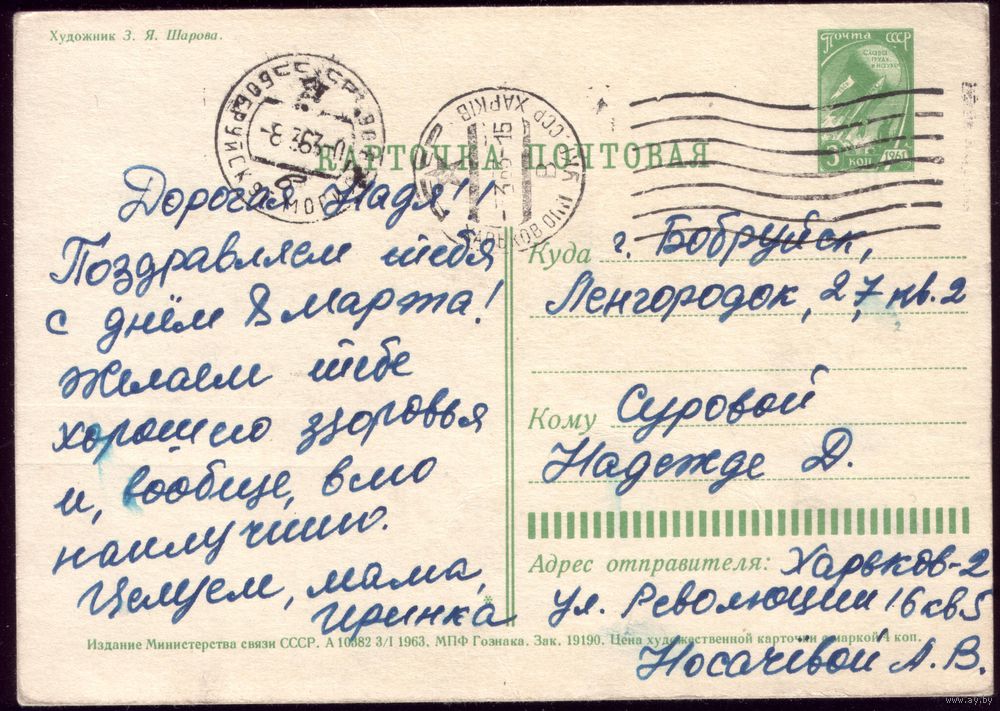 Художник З. Я. Шарова.
Почта СССР
Слава
труду
и науке
3 коп 1961
КАРТОЧКА ПОЧТОВАЯ
Дорогая Надя!
Поздравляем тебя
с днём 8 Марта!
Желаем тебе
хорошего здоровья
и, вообще, всего
наилучшего.
Целуем, мама,
Иринка
Куда г. Бобруйск,
Ленгородок, 27, кв. 2
Кому Суровой
Надежде Д.
Адрес отправителя: Харьков-2
ул. Революции 16 кв 5
Носачёвой А. В.
Издание Министерства связи СССР. А 10382 3/I 1963. МПФ Гознака. Зак. 19190. Цена художественной карточки с маркой 4 коп.
www.ay.by